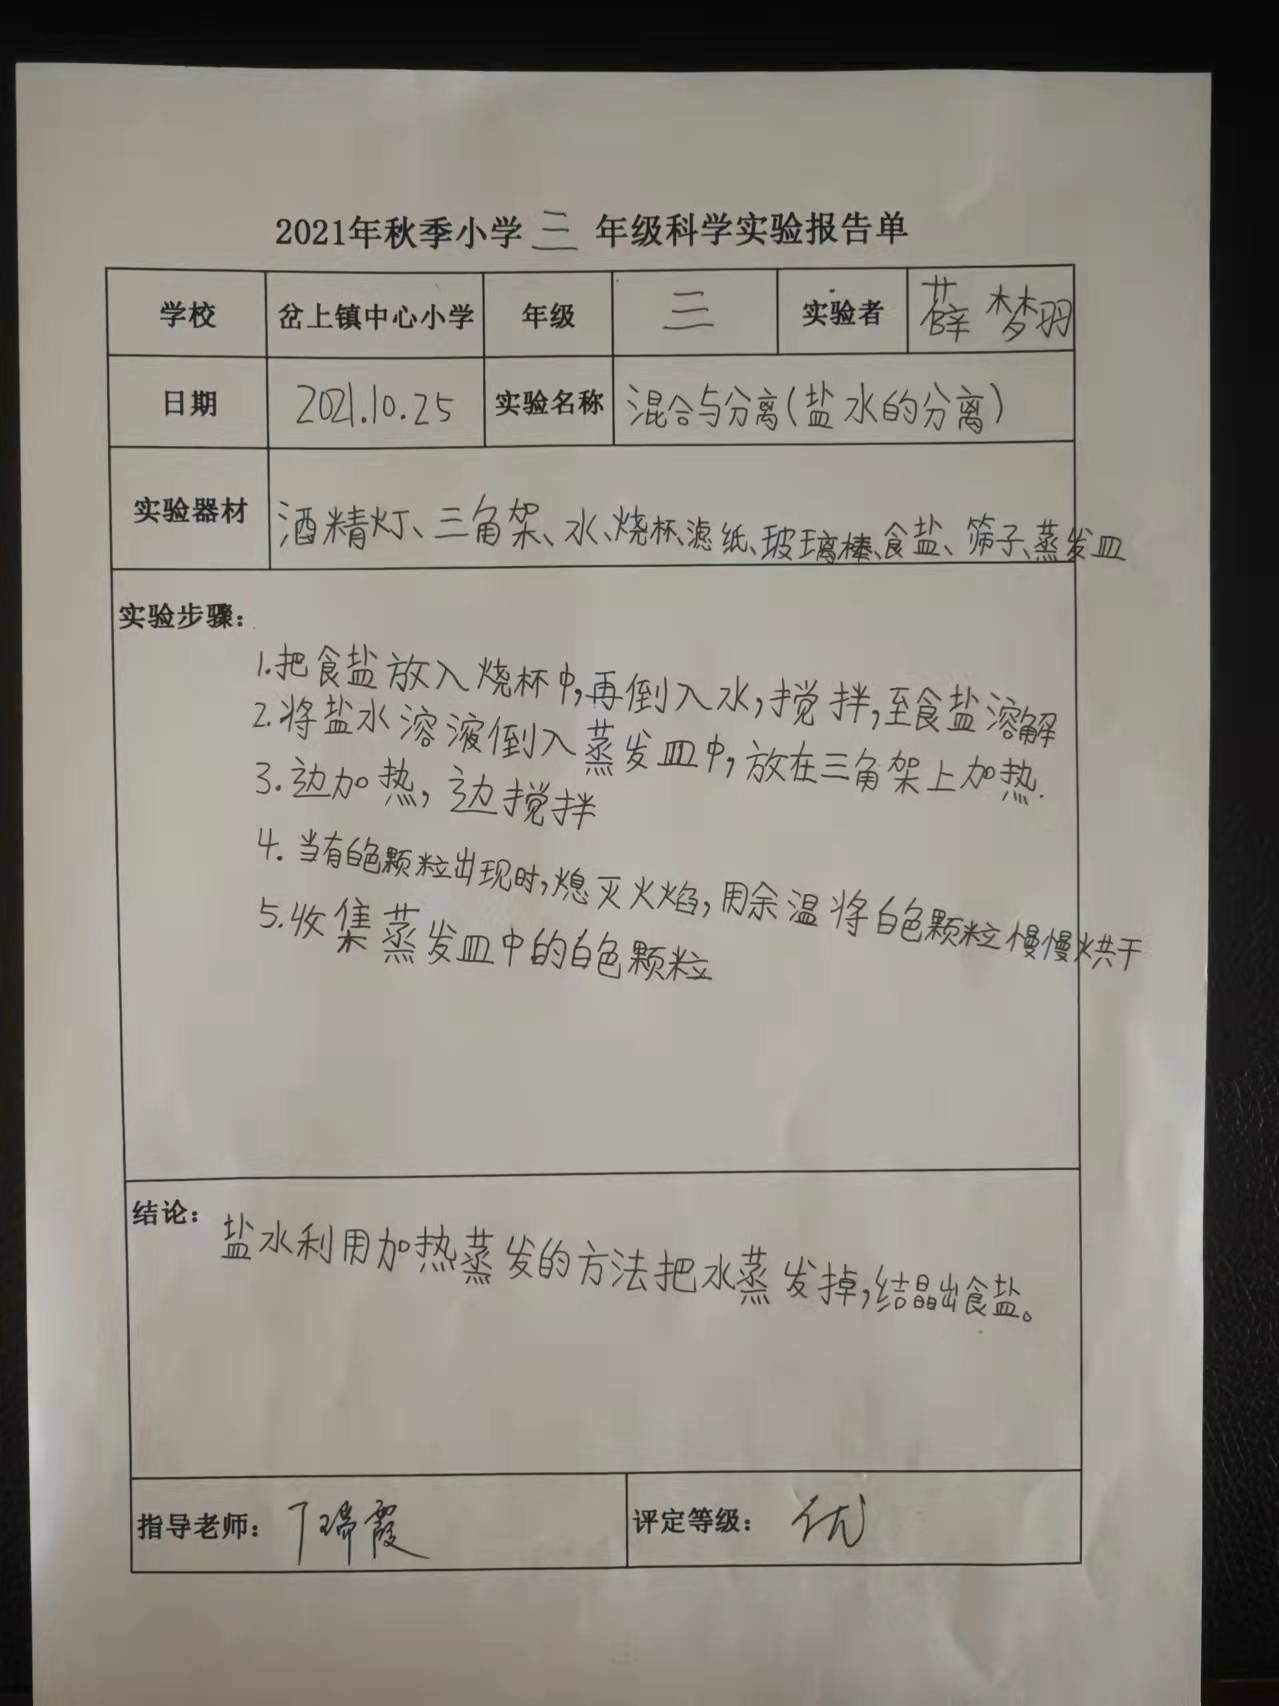 2021年秋季小学 三 年级科学实验报告单
学校 岔上镇中心小学 年级 三 实验者 薛梦羽
日期 2021.10.25 实验名称 混合与分离(盐水的分离)
实验器材 酒精灯、三角架、水、烧杯、滤纸、玻璃棒、食盐、筛子、蒸发皿
实验步骤:
1.把食盐放入烧杯中,再倒入水,搅拌,至食盐溶解
2.将盐水溶液倒入蒸发皿中,放在三角架上加热.
3.边加热,边搅拌
4.当有白色颗粒出现时,熄灭火焰,用余温将白色颗粒慢慢烘干
5.收集蒸发皿中的白色颗粒
结论:
盐水利用加热蒸发的方法把水蒸发掉,结晶出食盐。
指导老师: 丁 霞 评定等级: 优